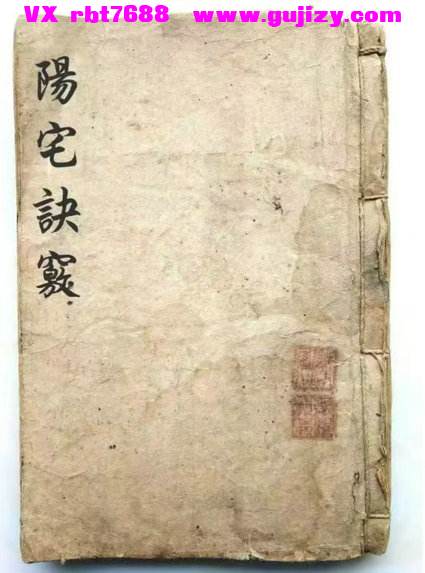 VX rbt7688 www.gujizy.com
陽宅訣竅